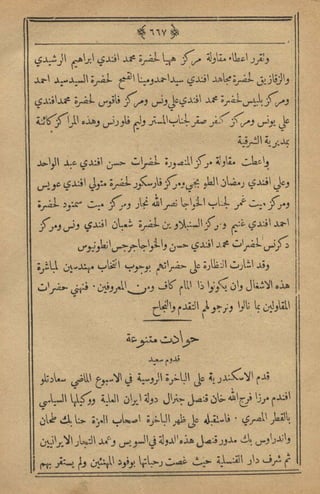 ﴿ ٦٦٧ ﴾
وتقرر اعطاء مقاولة مركز ههيا لحضرة محمد افندي ابراهيم الرشيدي
والزقازيق لحضرة مجاهد افندي سيد احمد ومينا القمح لحضرة السيد سيد احمد
ومركز بلبيس لحضرة محمد افندي علي ونس ومركز فاقوس لحضرة محمد افندي
علي يونس ومركز كفر صقر لجناب المستر وليم فلورنس وهذه المراكز كائنة
بمديرية الشرقية
واعطت مقاولة مركز المنصورة لحضرات حسن افندي عبد الواحد
وعلي افندي رمضان الطوبجي ومركز فارسكور لحضرة متولي افندي عويس
ومركز ميت غمر لجناب الخواجا نصر الله نجار ومركز ميت سمنود لحضرة
احمد افندي غنيم ومركز السنبلاوين لحضرة شعبان افندي ونس ومركز
دكرنس لحضرات محمد افندي حسن والخواجا جرجس انطونيوس
وقد اشارت النظارة على حضراتهم بوجوب انتخاب مهندسين لمباشرة
هذه الاشغال وان يكونوا ذا المام كاف ومن المعروفين . فنهني حضرات
المقاولين بما نالوا ونرجو لهم التقدم والنجاح
حوادث متنوعة
قدوم سعيد
قدم الاسكندرية على الباخرة الروسية في الاسبوع الماضي سعادتلو
افندم مرزا فرج الله خان قنصل جنرال دولة ايران العلية ووكيلها السياسي
بالقطر المصري . فاستقبله على ظهر الباخرة اصحاب العزة حنا بك طحان
واندراوس بك مدور قنصل هذه الدولة في السويس وعمد التجار الايرانيين
ثم شرف دار القنسلية حيث غصت رحباتها بوفود المهنئين ولم يستقر بهم